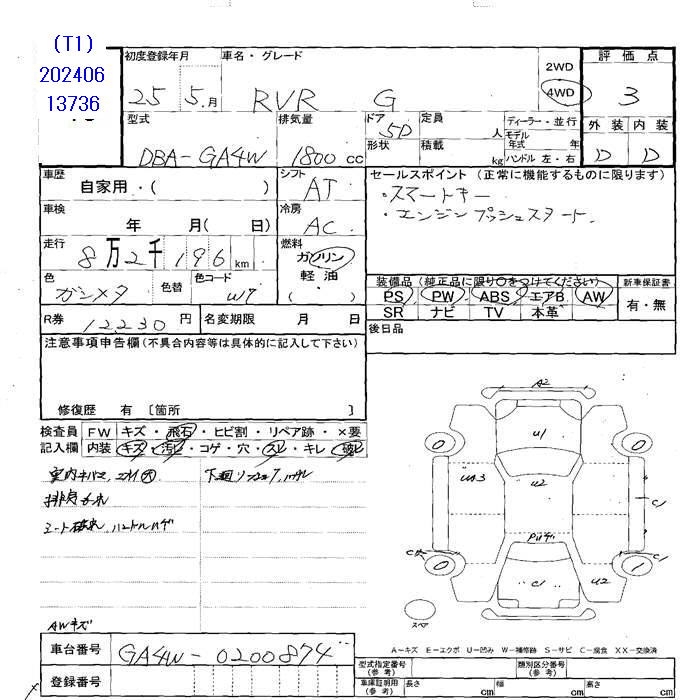 (T1)
202406
13736
初度登録年月 車名・グレード 2WD 4WD 評価点
25 5月 RVR G 3
型式 排気量 ドア 定員 ディーラー・並行
5D 人 モデル年式 年
外装 内装
DBA-GA4W 1800cc 形状 積載 kg ハンドル 左・右
D D
車歴 シフト セールスポイント(正常に機能するものに限ります)
自家用・( ) AT ・スマートキー
車検 冷房 ・エンジンプッシュスタート
年 月( 日) AC
走行 燃料
8万2千196km ガソリン
色 色替 色コード 軽油
ガンメタ ( )
装備品(純正品に限り○をつけてください) 新車保証書
PS PW ABS エアB AW 有・無
SR ナビ TV 本革
R券 12230円 名変期限 月 日
後日品
注意事項申告欄(不具合内容等は具体的に記入して下さい)
修復歴 有 [箇所 ]
検査員 FW キズ・飛石・ヒビ割・リペア跡・×要
記入欄 内装 キズ・汚レ・コゲ・穴・スレ・キレ・破レ
シート破れ、ハンドルハゲ
AWキズ
A2
U1
U2
U2
C1
C1
0
0
0
1
スペア
A-キズ E-エクボ U-凹み W-補修跡 S-サビ C-腐食 XX-交換済
車台番号 GA4W-0200874
登録番号
型式指定番号(参考) 類別区分番号(参考)
車庫証明用(参考) 長さ cm 幅 cm 高さ cm